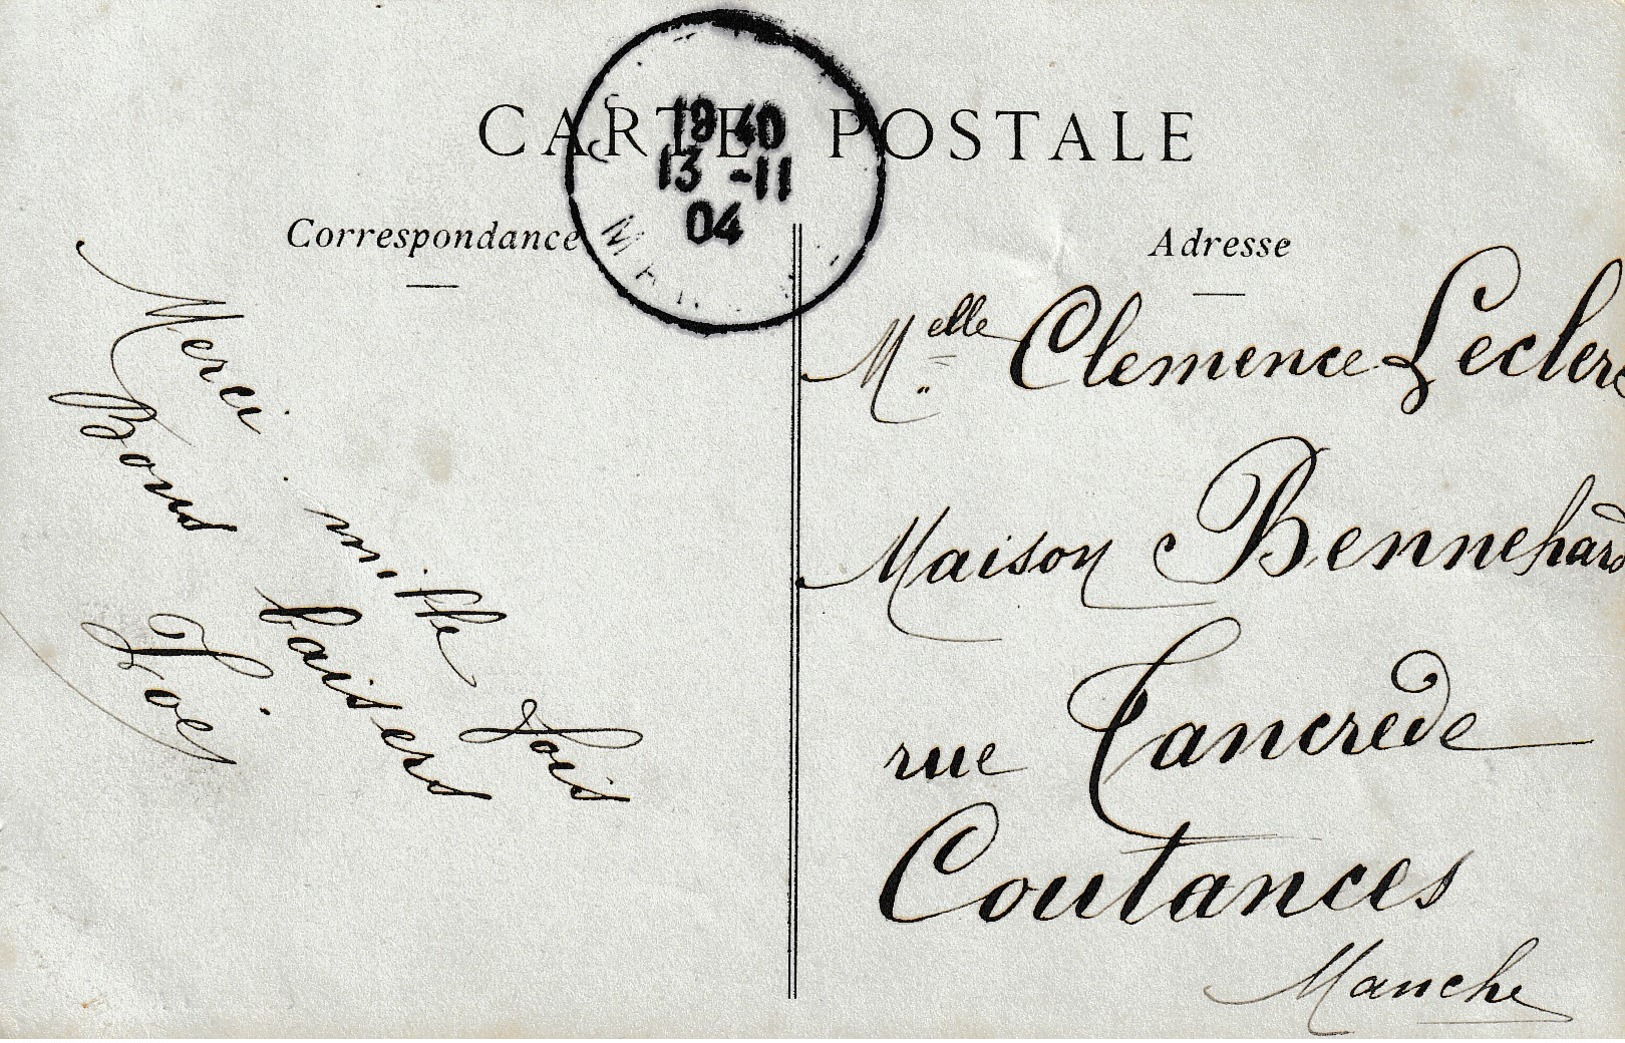 CARTE POSTALE
19 40
13 -11
04
Correspondance
Merci mille fois
Bons baisers
Zoé
Adresse
Melle Clemence Leclerc
Maison Bennehard
rue Tancrède
Coutances
Manche